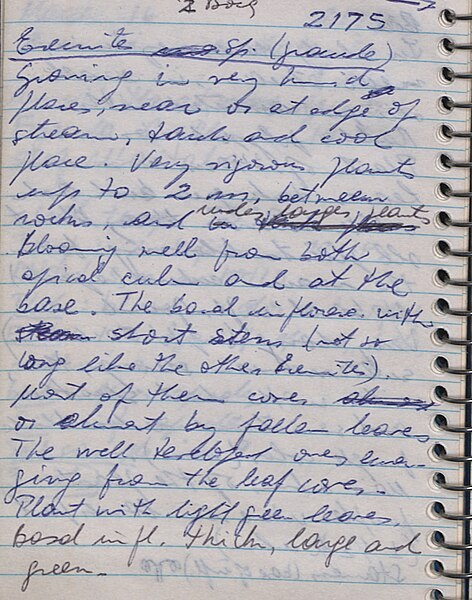 2175
Eremite sp. (grande)
Growing in very humid
places, near or at edge of
stream, dark and cool
place. Very vigorous plants
up to 2 m, between
rocks, and under larges plants
Blooming well from both
apical culm and at the
base. The basal infloresc. with
short stems (not so
long like the other Eremites).
Most of them cover
or almost by fallen leaves
The well developed ones emer-
ging from the leaf cover.
Plant with light green leaves,
basal infl. thick, large and
green.